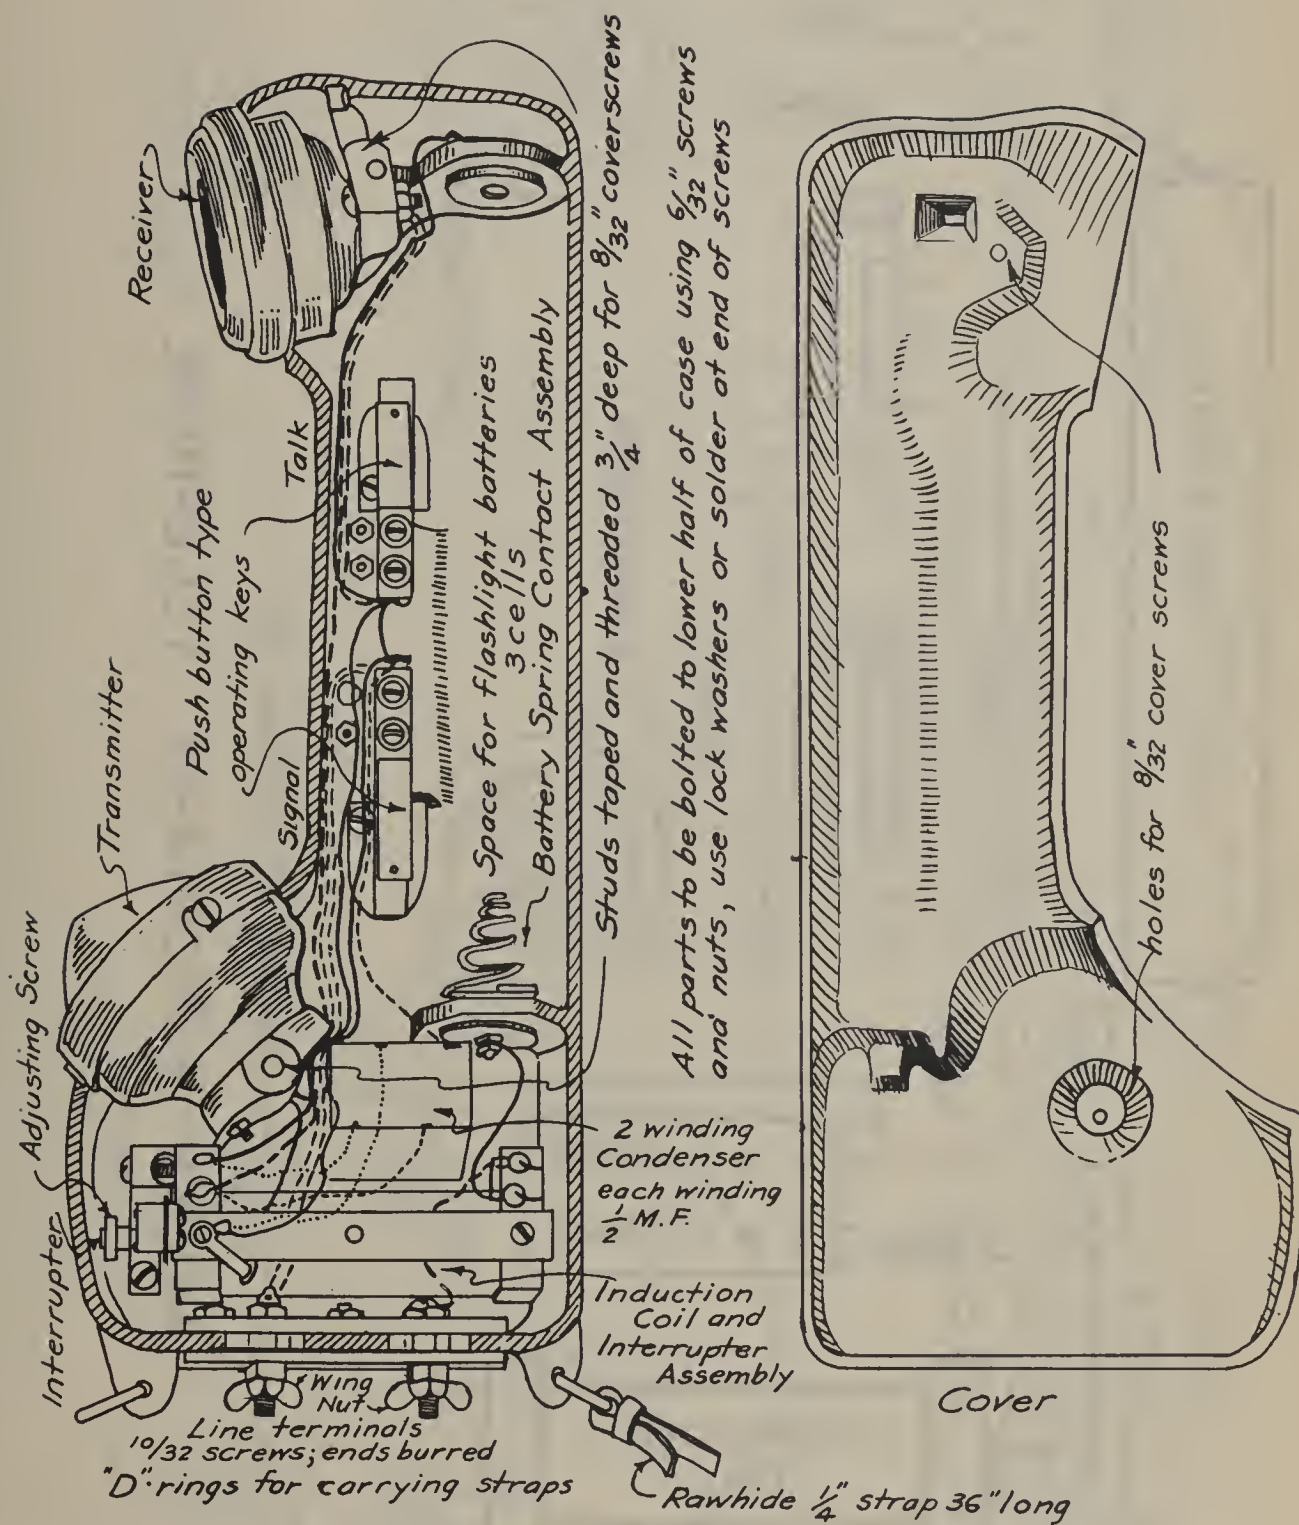 Receiver
Talk
Push button type
operating keys
Signal
Transmitter
Adjusting Screw
Interrupter
Space for flashlight batteries
3 cells
Battery Spring Contact Assembly
Studs taped and threaded 3/4" deep for 8/32" coverscrews
All parts to be bolted to lower half of case using 6/32" screws
and nuts, use lock washers or solder at end of screws
holes for 8/32" cover screws
2 winding
Condenser
each winding
1/2 M.F.
Induction
Coil and
Interrupter
Assembly
Wing
Nut
Line terminals
10/32 screws; ends burred
"D"-rings for carrying straps
Rawhide 1/4" strap 36" long
Cover